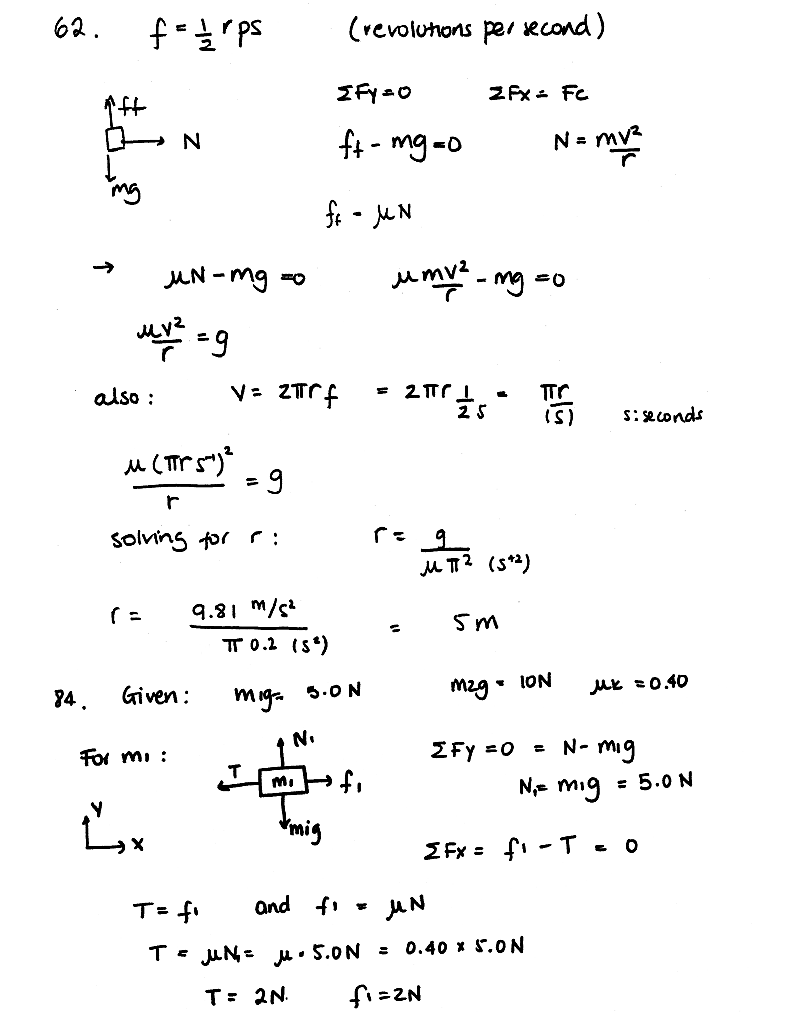 62. f = 1/2 rps (revolutions per second)
ΣFy=0 ΣFx = Fc
ff
N
mg
ff - mg=0 N = mv²/r
ff = μN
→ μN - mg =0 μ mv²/r - mg =0
μv²/r = g
also: V= 2πrf = 2πr 1/2s = πr/(s) s:seconds
μ(πr s⁻¹)²/r = g
solving for r: r= g/μπ² (s⁺²)
r = 9.81 m/s²/π 0.2 (s²) = 5m
84. Given: m1g= 5.0N m2g = 10N μk =0.40
For m1: N1
T m1 f1
m1g
y
x
ΣFy =0 = N- m1g
N1= m1g = 5.0N
ΣFx = f1 - T = 0
T= f1 and f1 = μN
T = μN1= μ · 5.0N = 0.40 x 5.0N
T= 2N. f1=2N